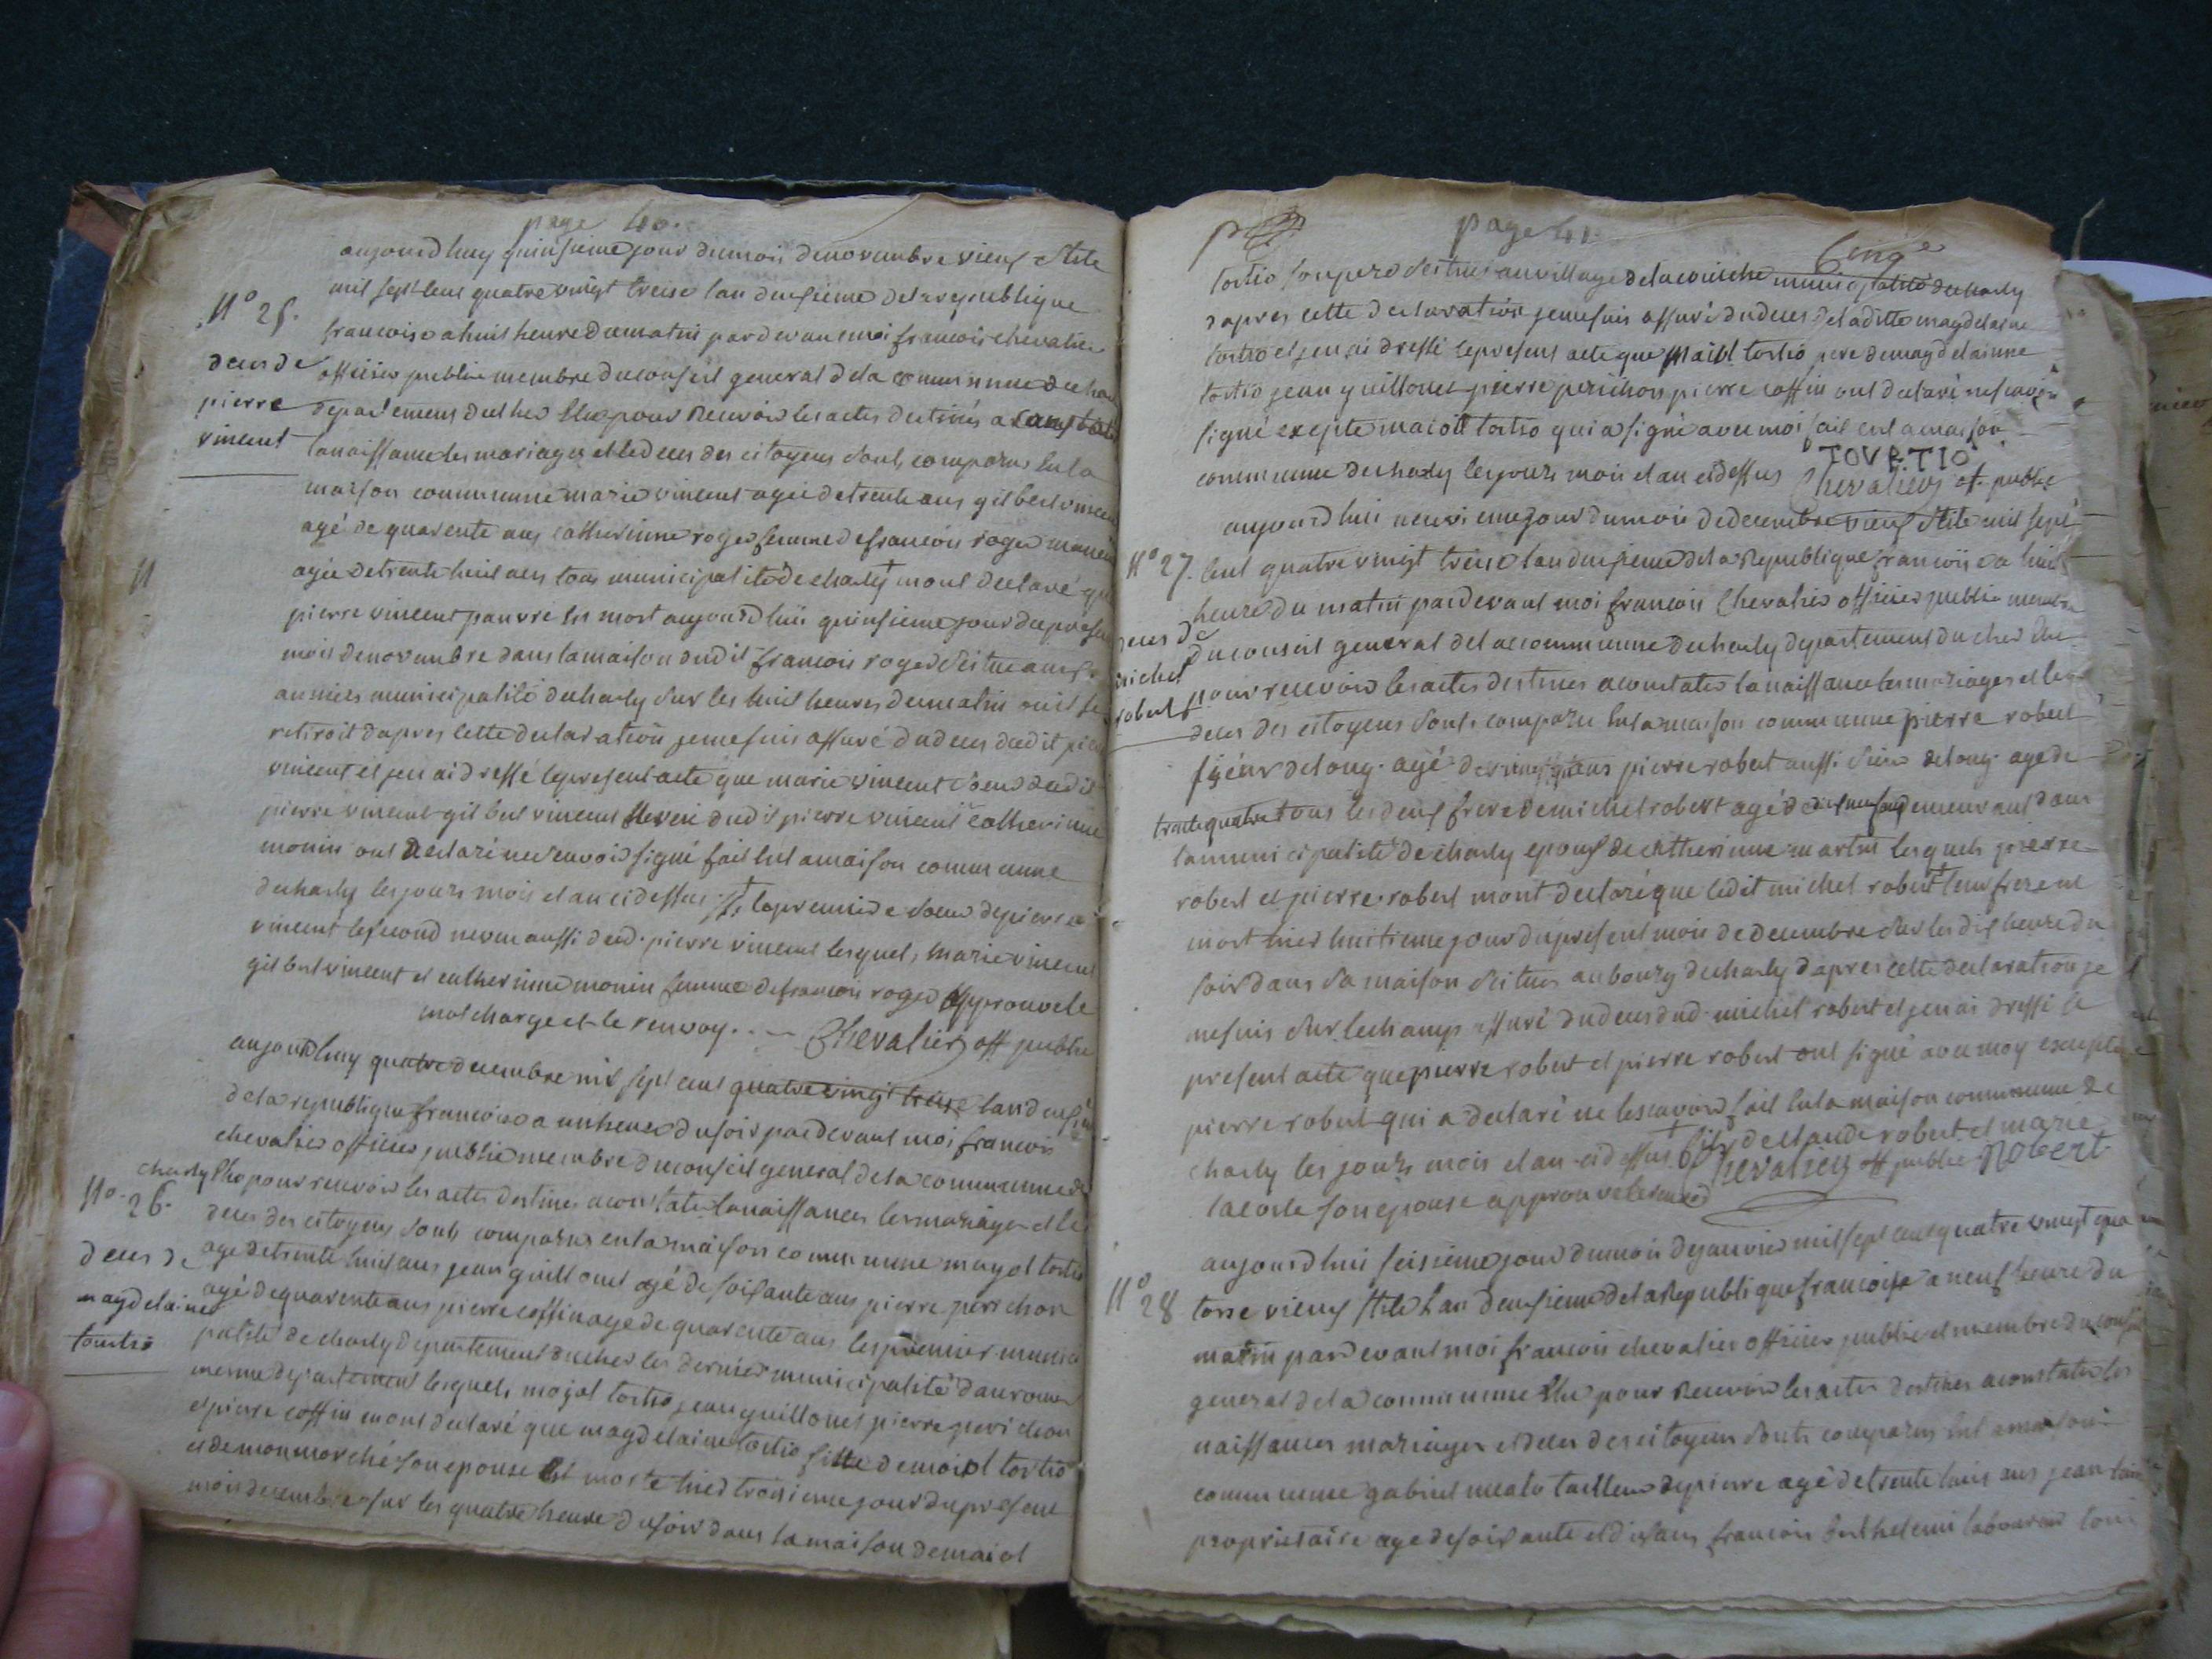 page 40.
aujourdhuy quinsieme jour dumois denovambre vieux stile
mil sept cent quatre vingt treise lan deusieme delarepublique
N° 25.
francoise a huit heure dumatin pardevant moi francois chevalier
deces de
officier public membre duconseil general dela communne decharly
pierre
departement ducher Elu pour Recevoir les actes destinés a constater
vincent
lanaissance les mariages et le deces des citoyens sont comparus en la
maison communne marie vincent agée detrente ans gilbert vincent
agé de quarente ans catherinne roger femme de francois roger
agée detrente huit ans tous municipalité de charly mont declaré que
pierre vincent pauvre est mort aujourdhui quinsieme jour dupresent
mois denovambre dans lamaison dudit francois roger scituee aux
municipalité decharly sur les huit heures dumatin ou il se
retiroit dapres cette declaration jemesuis assuré dudeces dudit pierre
vincent et jen ai dressé lepresent acte que marie vincent soeur dudit
pierre vincent gilbert vincent neveu dudit pierre vincent catherinne
monin ont declaré ne scavoir signé fait en la maison communne
decharly les jours mois et an cidessus lapremiere soeur depierre
vincent lesecond neveu aussi dud. pierre vincent lesquels marie vincent
gilbert vincent et catherinne monin femme defrancois roger approuve le
mot charge et le renvoy. . — Chevalier off public
aujourdhuy quatre decembre mil sept cent quatre vingt treise lan deusieme
dela republique francoise a un heure dusoir pardevant moi francois
chevalier officier public membre duconseil general dela communne de
charly Elu pour recevoir les actes destines aconstater lanaissances les mariages et le
N° 26.
deces des citoyens sont comparus en la maison communne mayol tortio
deces de
age detrente huit ans jean guillouet agé de soisante ans pierre perichon
magdelaine
agé dequarente ans pierre coffin age de quarente ans les premier munici
tourtio
palité de charly departement ducher les dernier municipalité
mesme departement lesquels mayol tortio jean guillouet pierre perichon
et pierre coffin mont declaré que magdelaine tortio fille demaiol tortio
et demonmorché son epouse Est morte hier troisieme jour dupresent
mois decembre sur les quatre heure dusoir dans lamaison demaiol
page 41
tortio son pere scitue au village de municipalité decharly
dapres cette declaration jemesuis assuré dudeces deladitte magdelaine
tortio et jen ai dressé lepresent acte que maiol tortio pere demagdelainne
tortio jean guillouet pierre perichon pierre coffin ont declaré nescavoir
signé exepte maiol tortio qui a signé avec moi fait en la maison
communne decharly lesjours mois et an cidessus
TOURTIO
Chevalier of. public
aujourdhui neuvieme jour dumois dedecembre vieux stile mil sept
N° 27.
cent quatre vingt treise lan deusieme dela Republique francoise a huit
heure du matin pardevant moi francois Chevalier officier public membre
deces de
duconseil general delacommunne decharly departement du cher Elu
michel
pour recevoir les actes destines aconstater lanaissance les mariages et le
robert
deces des citoyens sont comparu en la maison communne pierre robert
sieur delong agé de ans pierre robert aussi sieur delong age de
trente quatre tous les deux frere demichel robert agé de demeurant dans
lamunicipalité de charly epoux de catherinne martin lesquels pierre
robert et pierre robert mont declaré que ledit michel robert leur frere est
mort hier huitieme jour dupresent mois dedecembre sur les dix heure du
soir dans sa maison scitue aubourg decharly dapres cette declaration je
mesuis sur lechamp assuré dudeces dud. michel robert et jen ai dressé le
present acte que pierre robert et pierre robert ont signé avec moy excepte
pierre robert qui a declaré ne lescavoir fait en la maison communne de
charly les jours mois et an cidessus fils declaude robert et marie
lacoste son epouse approuve le renvoi
Chevalier off public Robert
aujourdhui seisieme jour dumois dejanvier mil sept cent quatre vingt qua
N° 28
torse vieux stile Lan deusieme dela Republique francoise a neuf heure du
matin pardevant moi francois chevalier officier public et membre du conseil
general dela communne Elu pour Recevoir les actes destines aconstater les
naissances mariages et deces des citoyens sont comparus en la maison
communne gabriel tailleur depierre agé detrente huit ans jean
proprietaire age desoisante et dix ans francois berthelemi laboureur tous